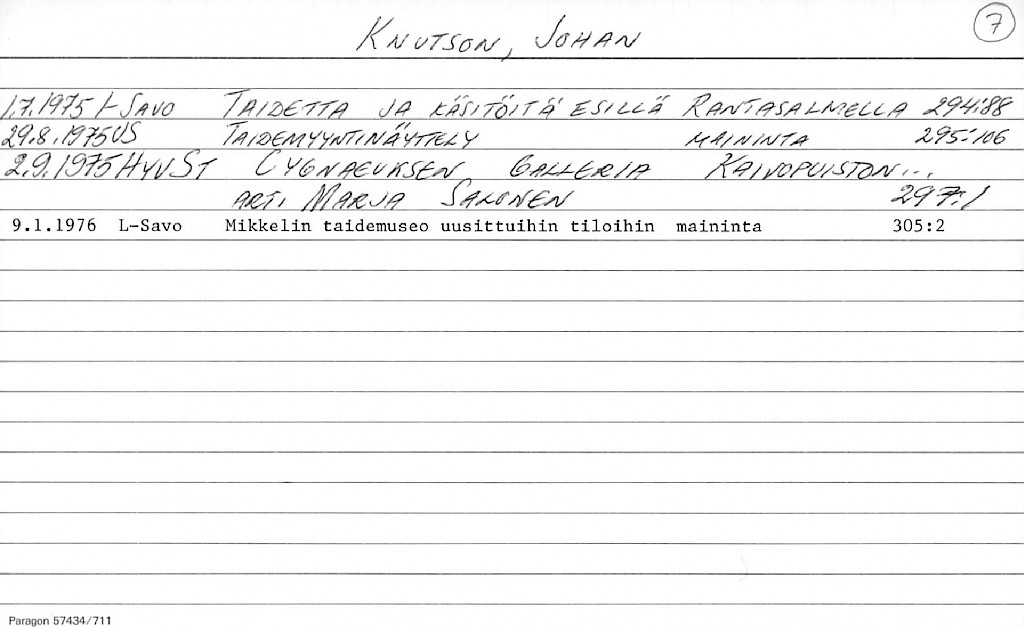 KNUTSON, JOHAN 7
1.7.1975 L-SAVO TAIDETTA JA KÄSITÖITÄ ESILLÄ RANTASALMELLA 294:88
29.8.1975 US TAIDEMYYNTINÄYTTELY MAININTA 295:106
2.9.1975 HYVST CYGNAEUKSEN GALLERIA KAIVOPUISTON...
ART. MARJA SALONEN 297:1
9.1.1976 L-Savo Mikkelin taidemuseo uusittuihin tiloihin maininta 305:2
Paragon 57434/711